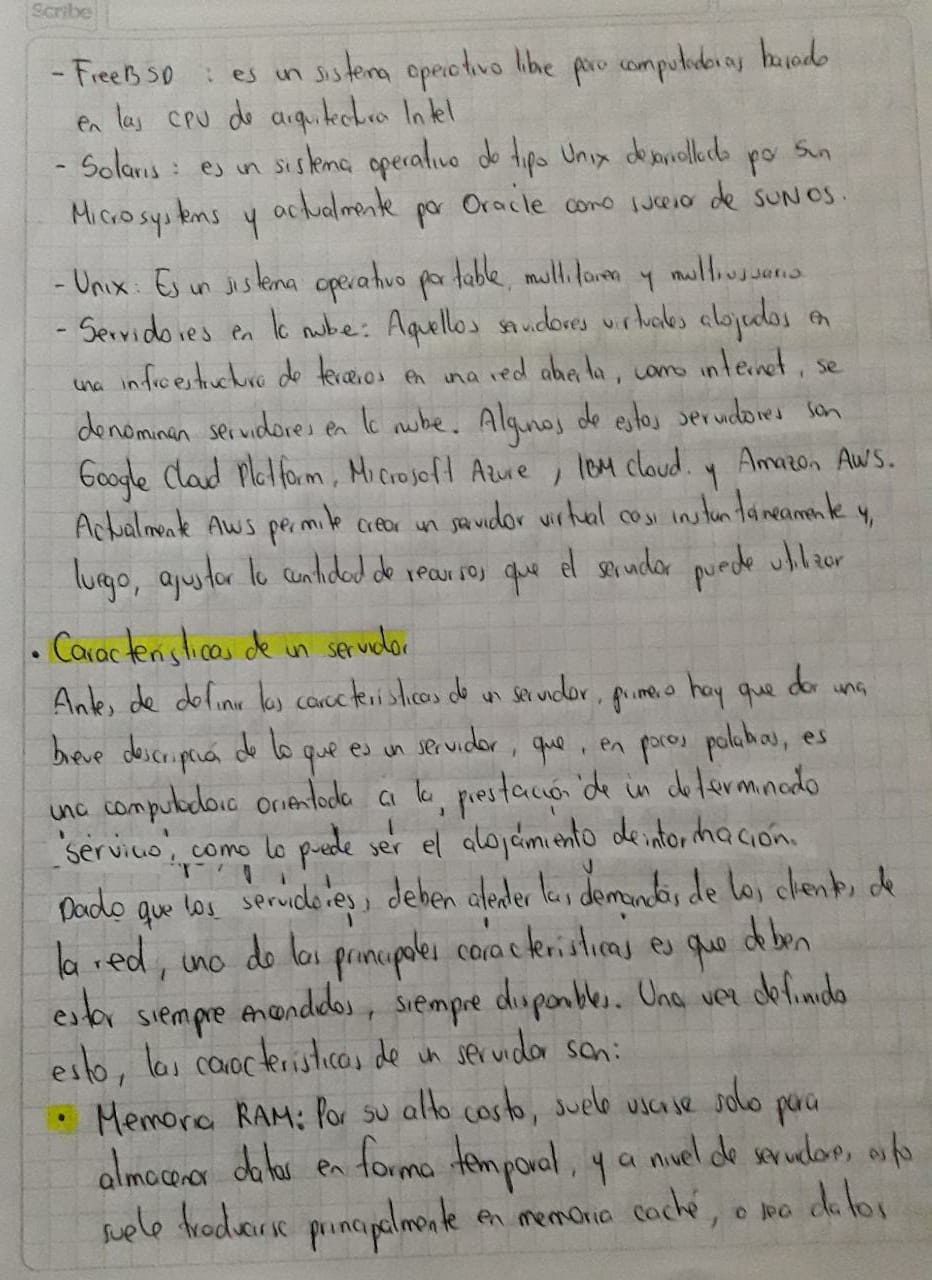 Scribe
- FreeBSD : es un sistema operativo libre para computadoras basado
en las CPU de arquitectura Intel
- Solaris: es un sistema operativo de tipo Unix desarrollado por Sun
Microsystems y actualmente por Oracle como sucesor de SUNOS.
- Unix: Es un sistema operativo portable, multitarea y multiusuario
- Servidores en la nube: Aquellos servidores virtuales alojados en
una infraestructura de terceros en una red abierta, como internet, se
denominan servidores en la nube. Algunos de estos servidores son
Google Cloud Platform, Microsoft Azure, IBM Cloud. y Amazon AWS.
Actualmente AWS permite crear un servidor virtual casi instantáneamente y,
luego, ajustar la cantidad de recursos que el servidor puede utilizar
• Características de un servidor
Antes de definir las características de un servidor, primero hay que dar una
breve descripción de lo que es un servidor, que, en pocas palabras, es
una computadora orientada a la prestación de un determinado
servicio, como lo puede ser el alojamiento de información.
Dado que los servidores, deben atender las demandas de los clientes de
la red, una de las principales características es que deben
estar siempre encendidos, siempre disponibles. Una vez definido
esto, las características de un servidor son:
• Memoria RAM: Por su alto costo, suele usarse solo para
almacenar datos en forma temporal, y a nivel de servidores esto
suele traducirse principalmente en memoria caché, o sea datos